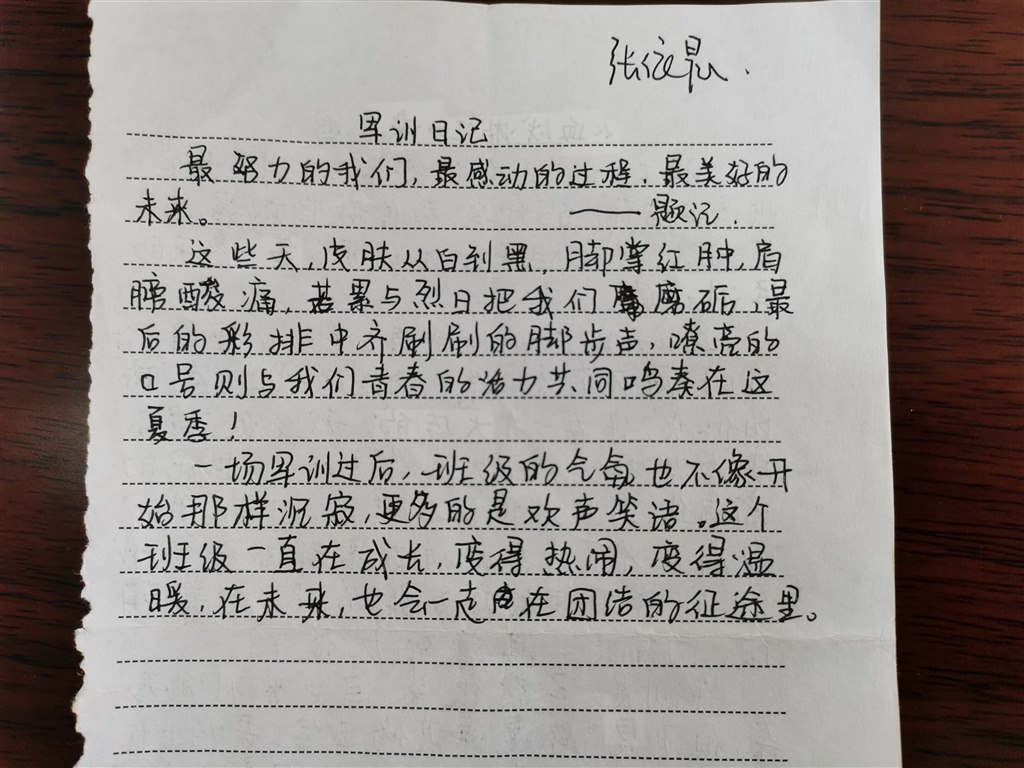 张依晨.
军训日记
最努力的我们,最感动的过程.最美好的
未来。 ——题记.
这些天,皮肤从白到黑,脚掌红肿,肩
膀酸痛,苦累与烈日把我们磨砺,最
后的彩排中齐刷刷的脚步声,嘹亮的
口号则与我们青春的活力共同鸣奏在这
夏季!
一场军训过后,班级的气氛也不像开
始那样沉寂,更多的是欢声笑语。这个
班级一直在成长,变得热闹,变得温
暖.在未来,也会一起在团结的征途里。